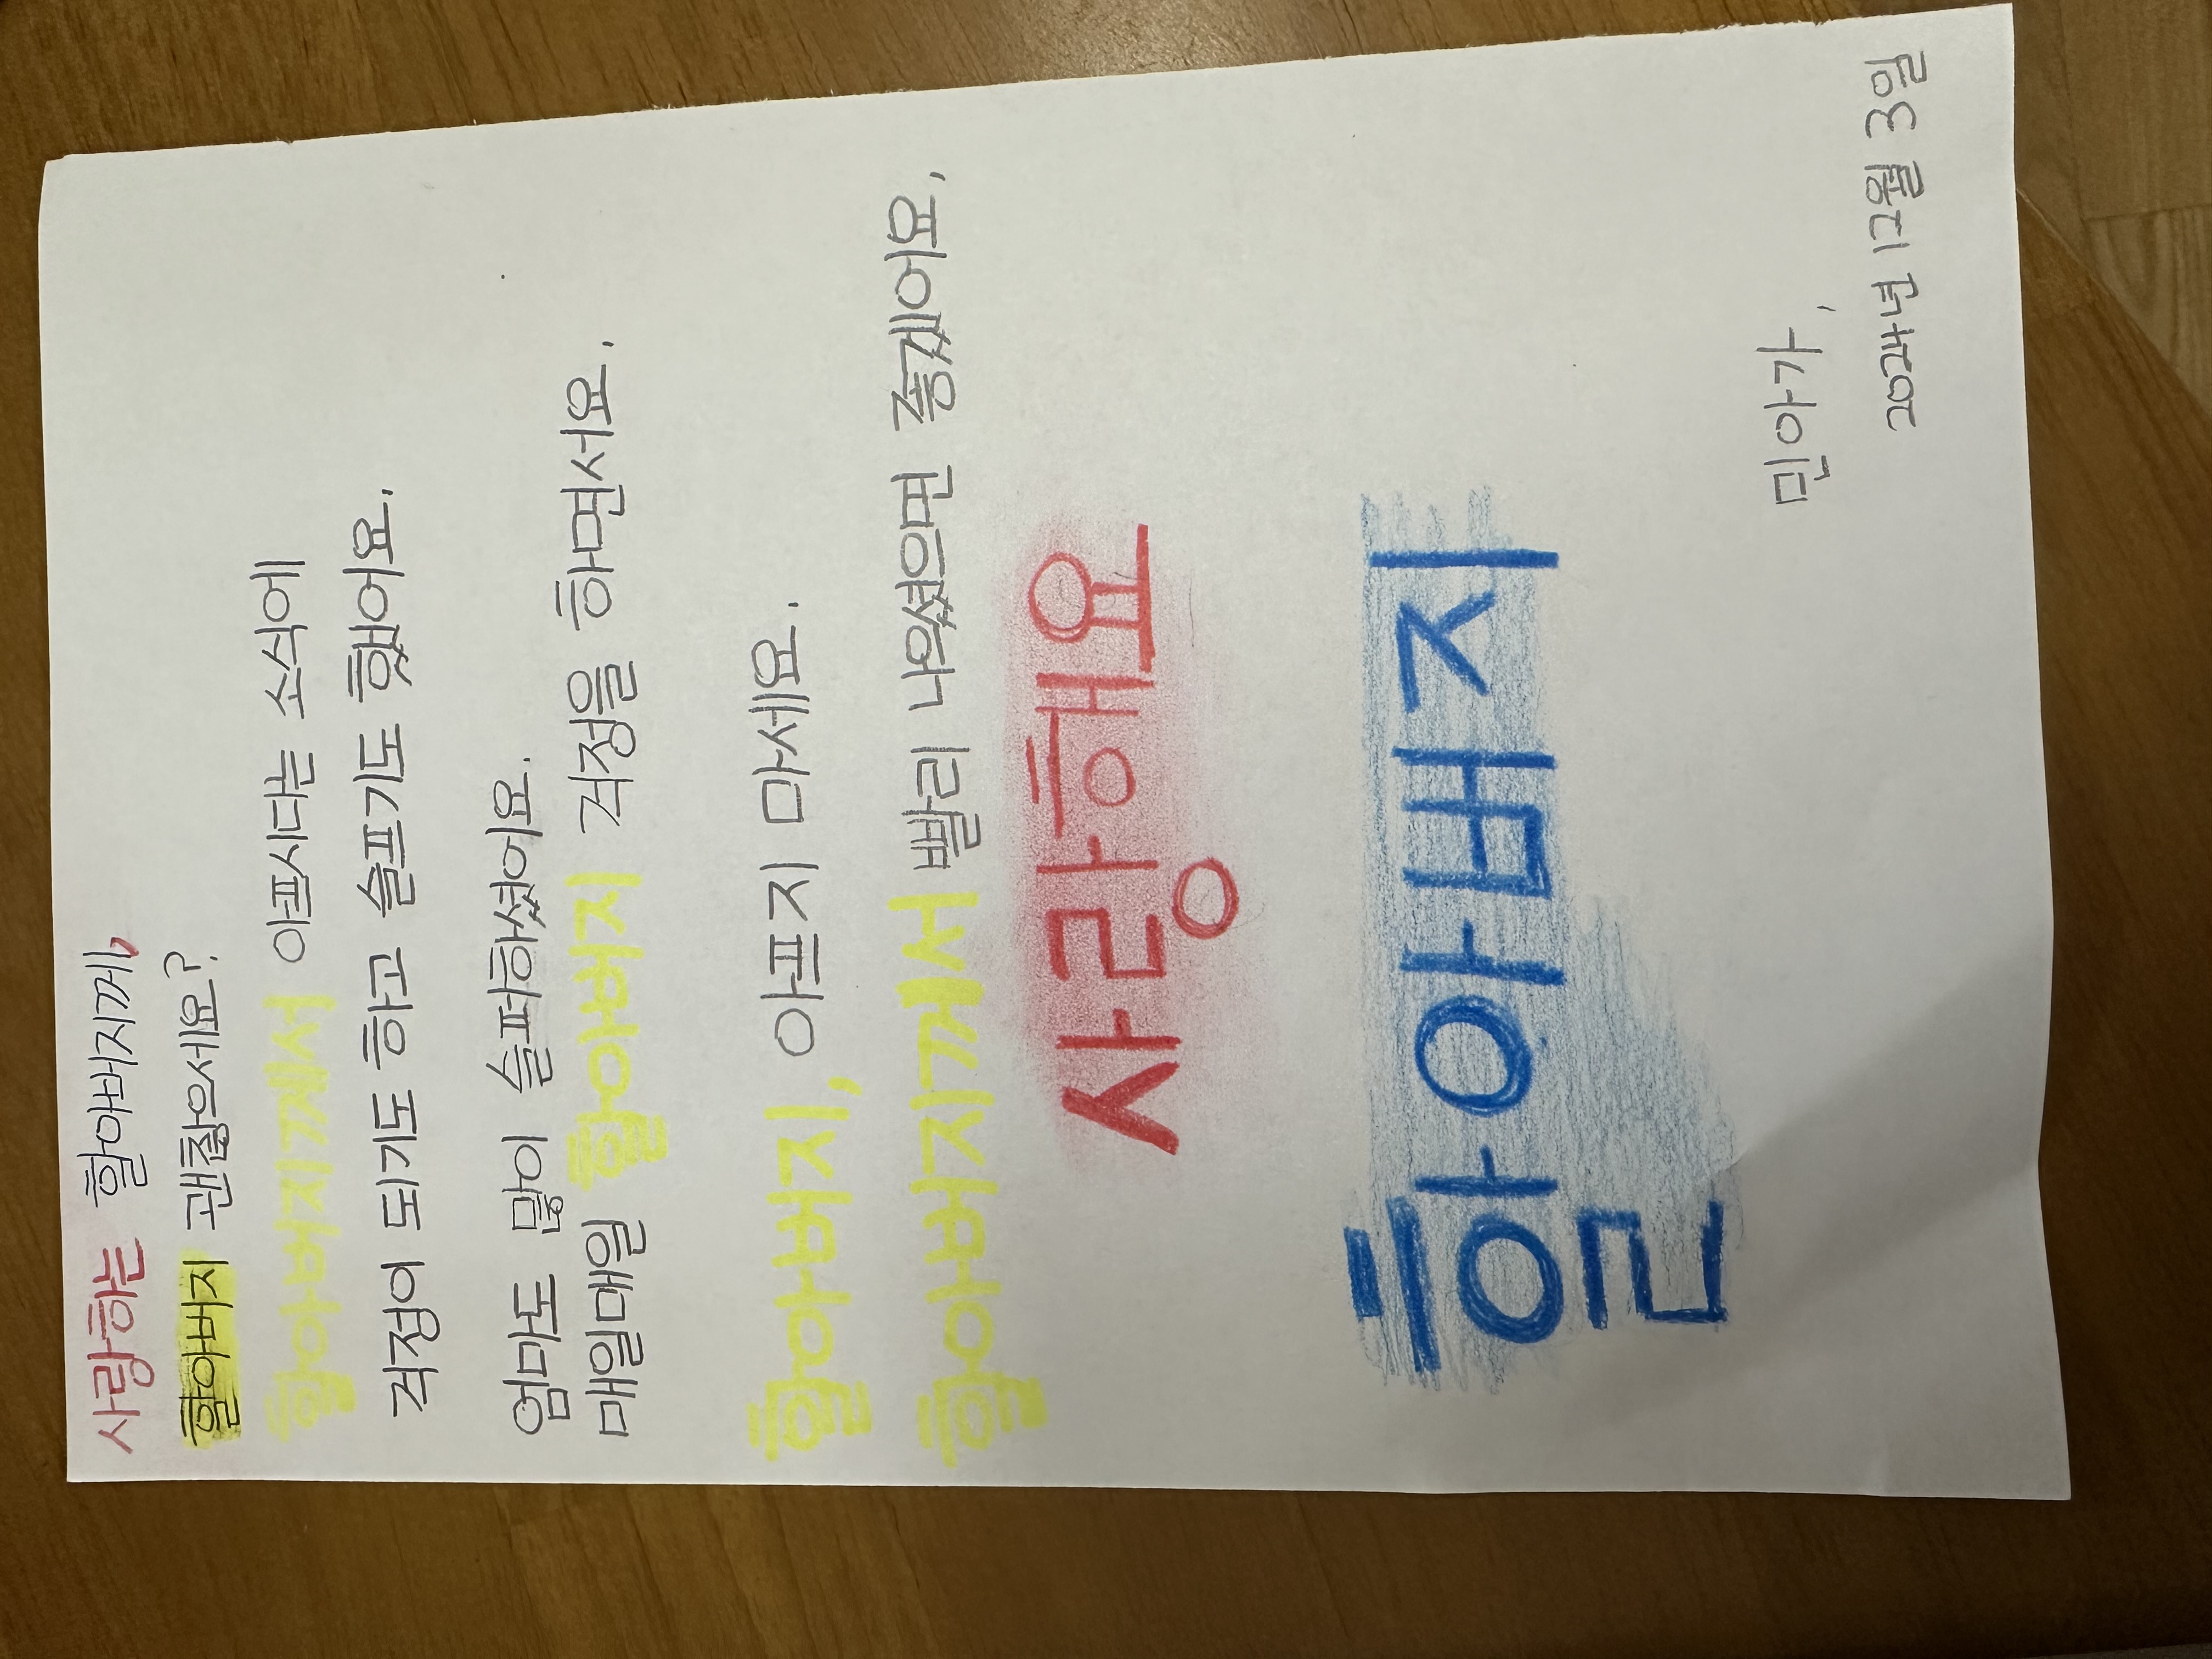 사랑하는 할아버지께,
할아버지 괜찮으세요?
할아버지께서 아프시다는 소식에
걱정이 되기도 하고 슬프기도 했어요.
엄마도 많이 슬퍼하셨어요.
매일매일 할아버지 걱정을 하면서요.
할아버지, 아프지 마세요.
할아버지께서 빨리 나으셨으면 좋겠어요,
사랑해요
할아버지
민아가,
2024년 12월 3일